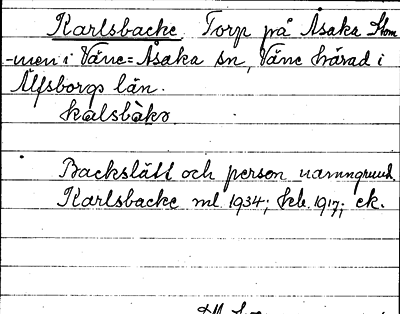 Karlsbacke Torp på Åsaka Stom
-men i Väne=Åsaka sn, Väne härad i
Älfsborgs län.
kalsbàkə
Backslätt och person namngrund.
Karlsbacke ml 1934; hfl. 1917; ek.